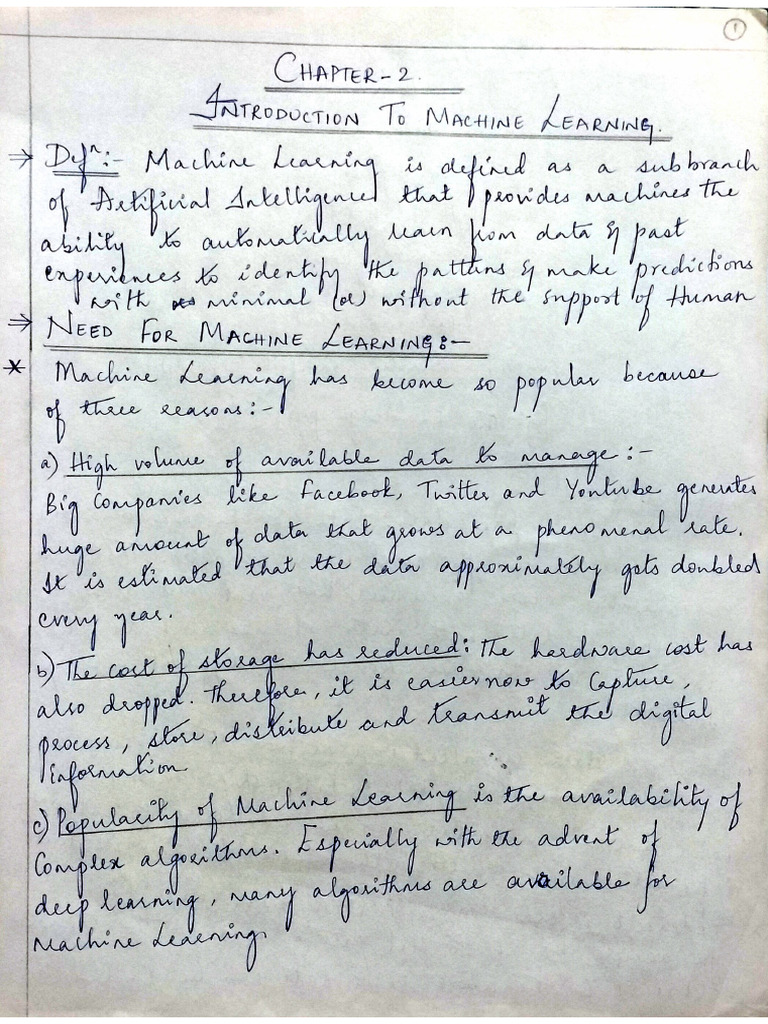 1
CHAPTER-2.
INTRODUCTION TO MACHINE LEARNING.
⇒ Defⁿ:- Machine Learning is defined as a subbranch
of Artificial Intelligence that provides machines the
ability to automatically learn from data & past
experiences to identify the patterns & make predictions
with minimal (or) without the support of Human
⇒ NEED FOR MACHINE LEARNING:-
* Machine Learning has become so popular because
of three reasons:-
a) High volume of available data to manage:-
Big Companies like Facebook, Twitter and Youtube generates
huge amount of data that grows at a phenomenal rate.
It is estimated that the data approximately gets doubled
every year.
b) The cost of storage has reduced: The hardware cost has
also dropped. Therefore, it is easier now to Capture,
process, store, distribute and transmit the digital
information
c) Popularity of Machine Learning is the availability of
Complex algorithms. Especially with the advent of
deep learning, many algorithms are available for
Machine Learning.